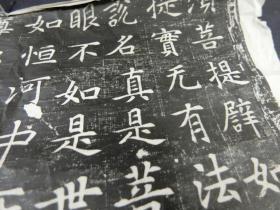 須菩提譬如
提實无有法
說名真是菩
眼不如是世
如恒河中